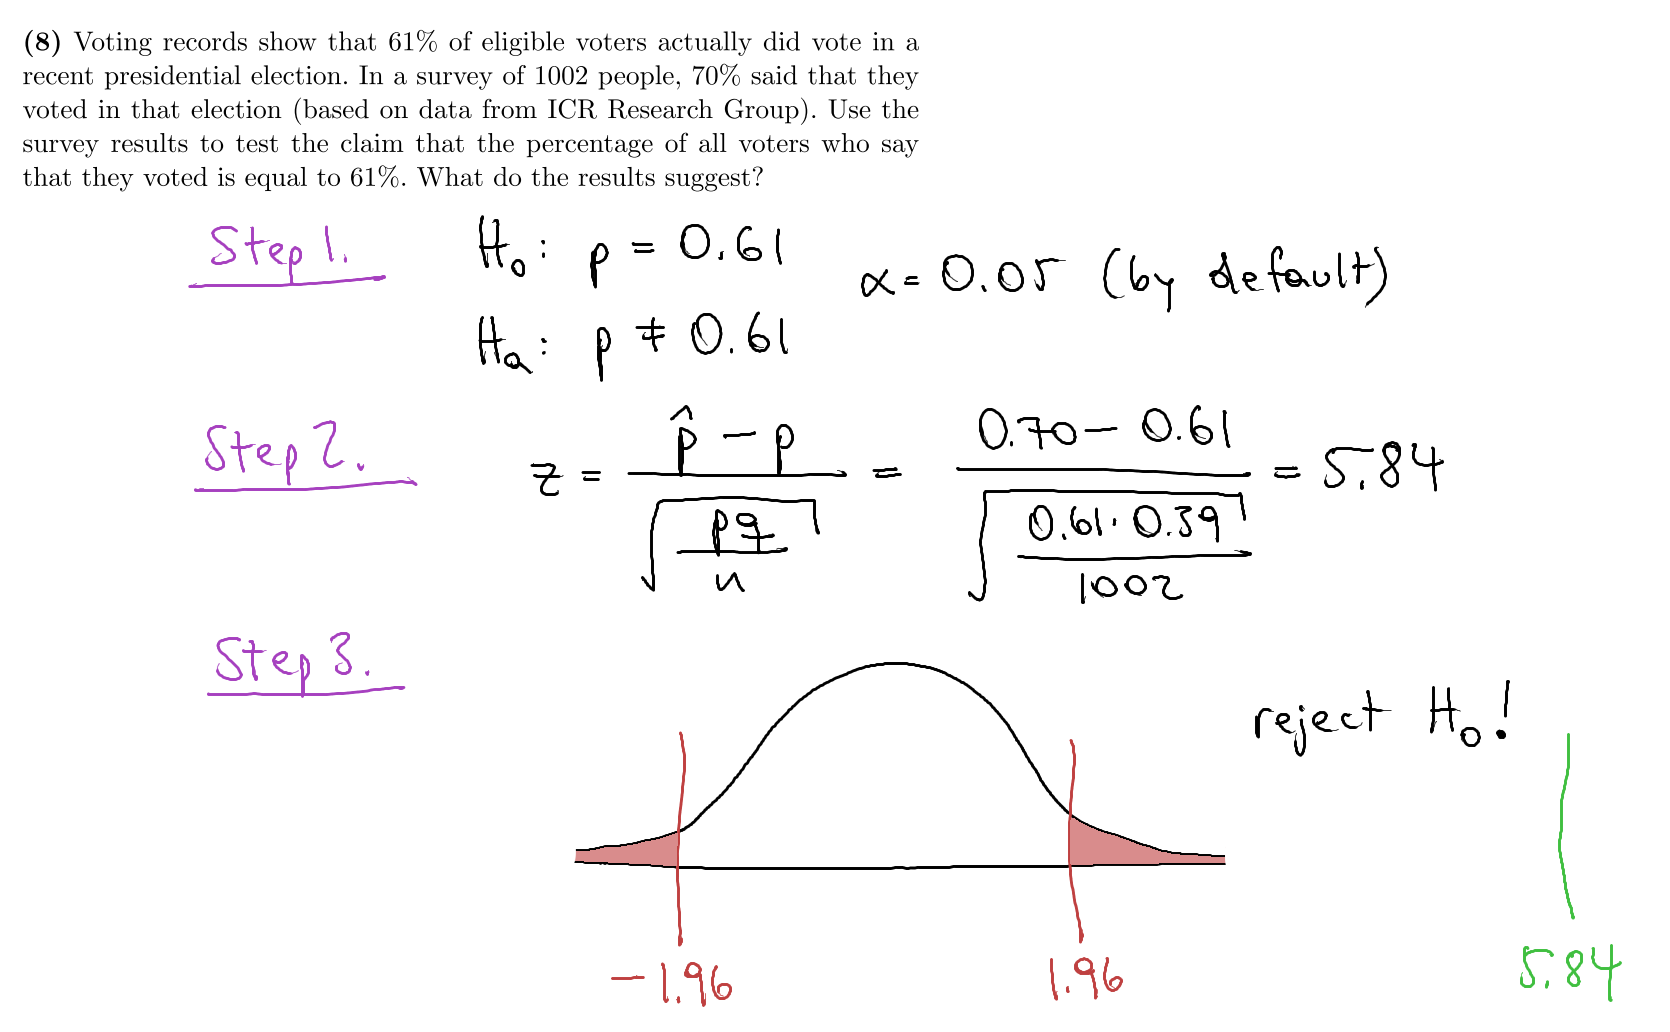 (8) Voting records show that 61% of eligible voters actually did vote in a
recent presidential election. In a survey of 1002 people, 70% said that they
voted in that election (based on data from ICR Research Group). Use the
survey results to test the claim that the percentage of all voters who say
that they voted is equal to 61%. What do the results suggest?
Step 1.
H₀: p = 0.61
α = 0.05 (by default)
Hₐ: p ≠ 0.61
Step 2.
z = (p̂ − p) / √(pq / n) = (0.70 − 0.61) / √(0.61 · 0.39 / 1002) = 5.84
Step 3.
reject H₀!
−1.96
1.96
5.84